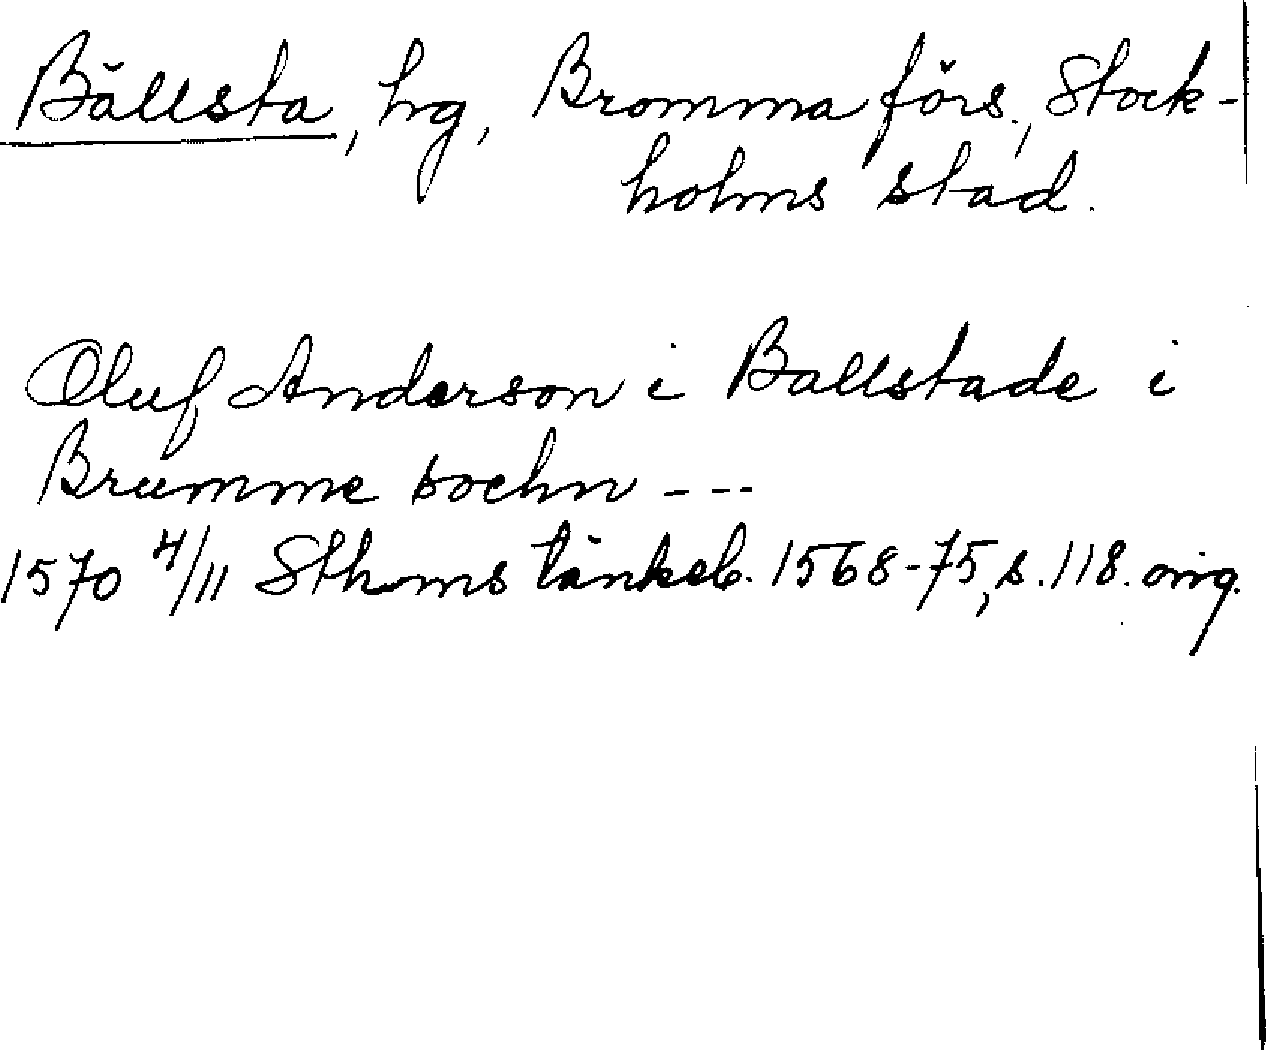 Bällsta, hg, Bromma förs., Stock-
holms stad.
Oluf Anderson i Ballstade i
Brumme sochn ---
1570 4/11 Sthms tänkeb. 1568-75, s. 118. orig.